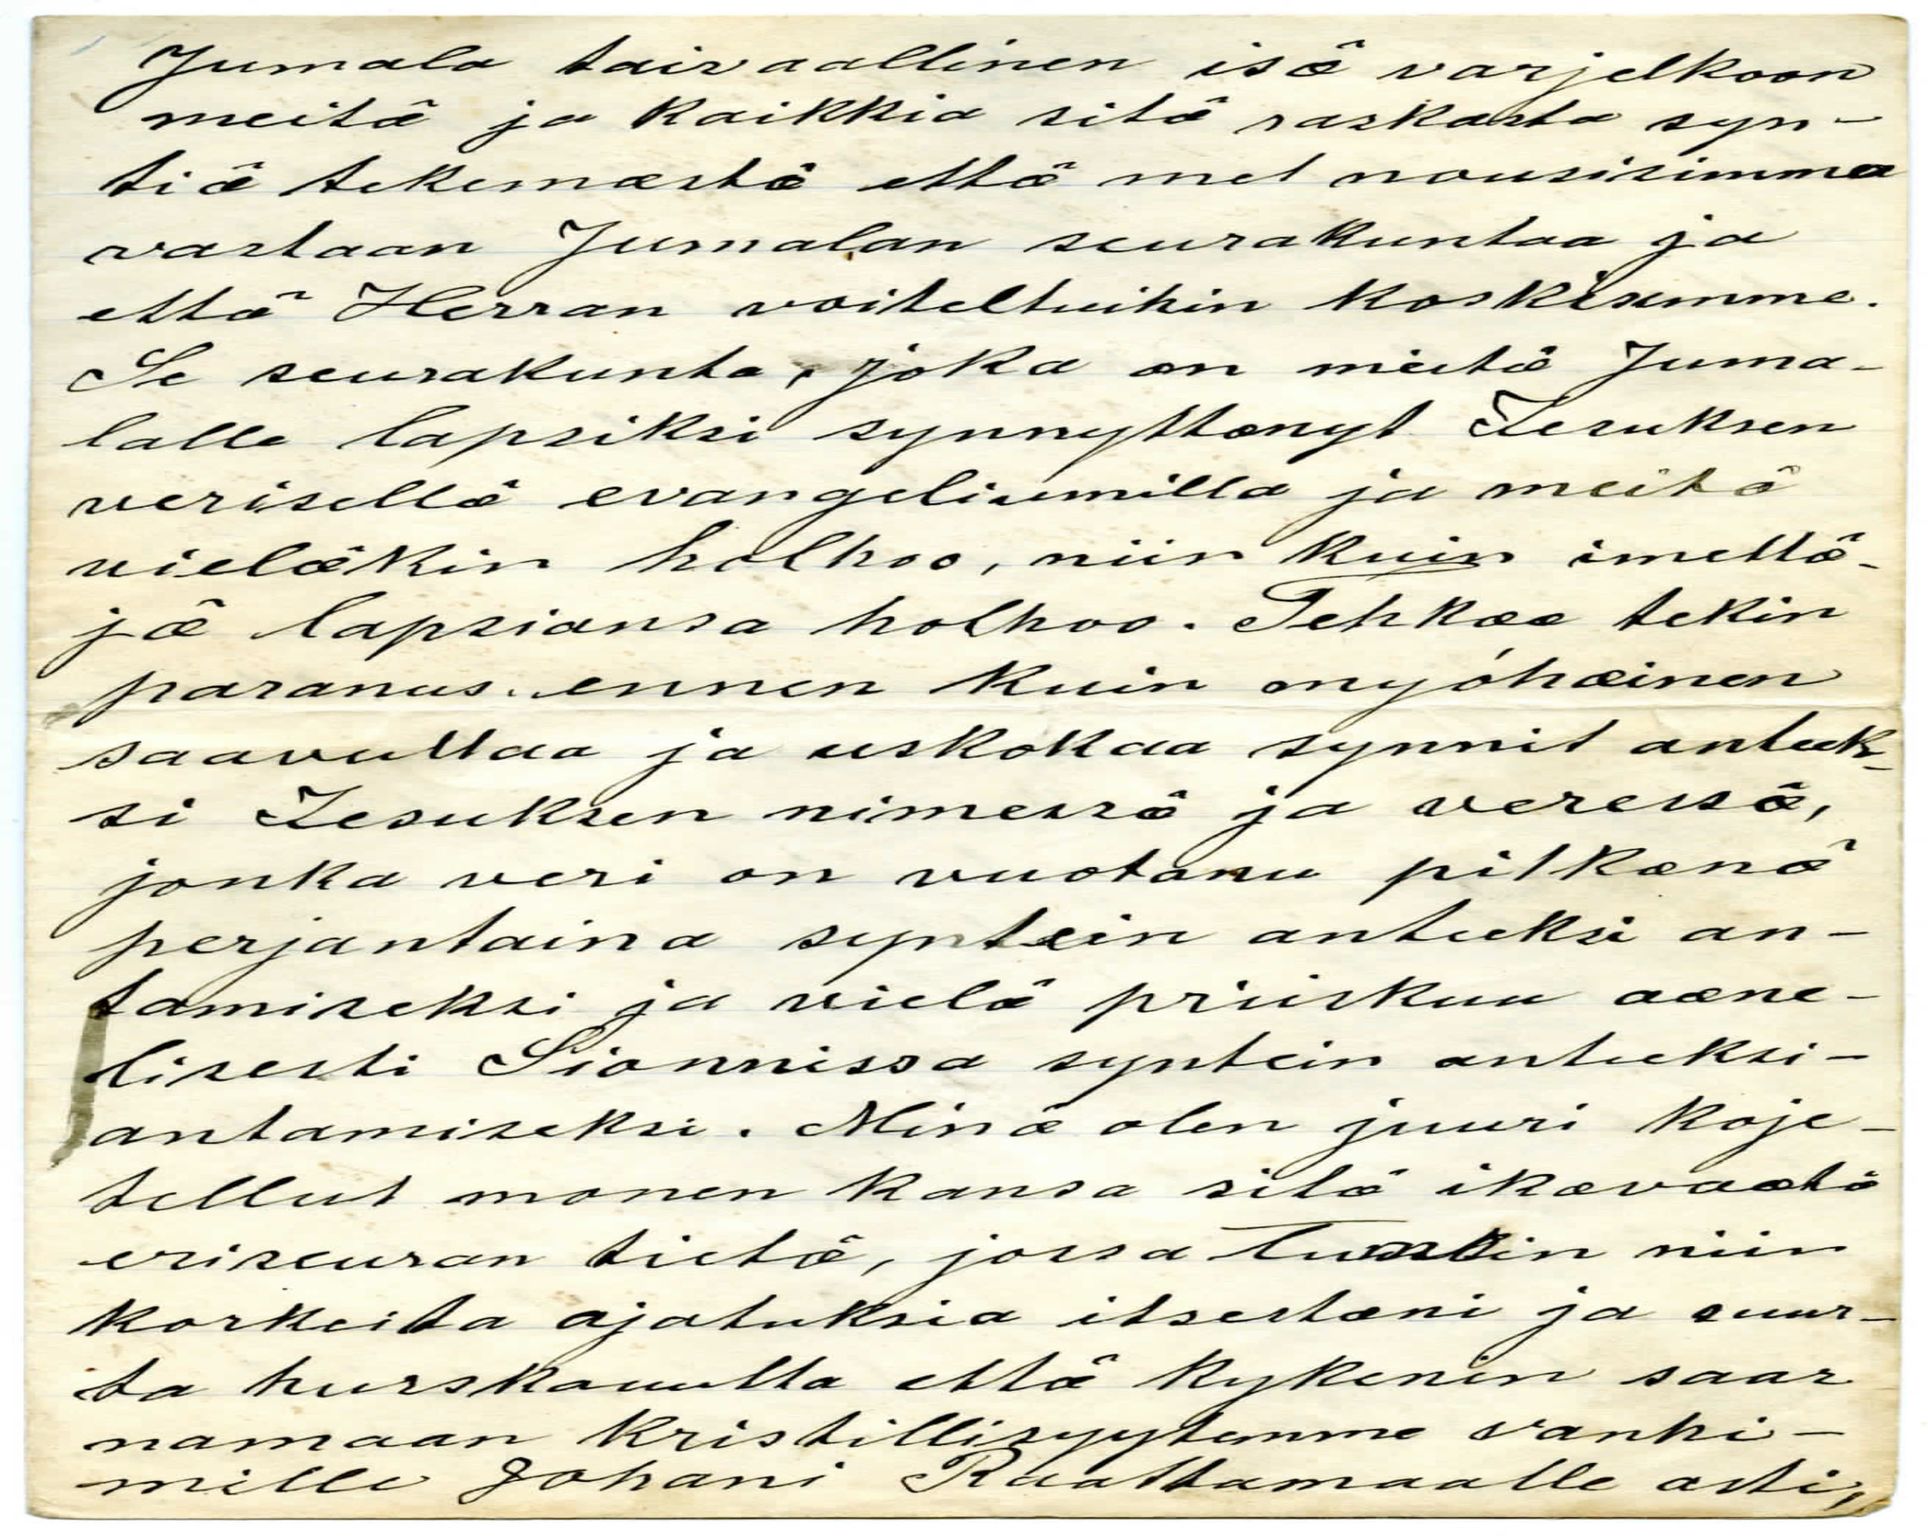 Jumala taivaallinen isä varjelkoon
meitä ja kaikkia sitä raskasta syn-
tiä tekemästä että met nousisimma
vastaan Jumalan seurakuntaa ja
että Herran voiteltuihin koskisimme.
Se seurakunta, joka on meitä Juma-
lalle lapsiksi synnyttänyt Jesuksen
verisellä evangeliumilla ja meitä
vieläkin holhoo, niin kuin imettä-
jä lapsiansa holhoo. Tehkää tekin
paranus ennen kuin myöhäinen
saavuttaa ja uskokaa synnit anteek-
si Jesuksen nimessä ja veressä,
jonka veri on vuotanu pitkänä
perjantaina syntein anteeksi an-
tamiseksi ja vielä priiskuu ääne-
lisesti Sionnissa syntein anteeksi-
antamiseksi. Minä olen juuri koje-
tellut monen kansa sitä ikävää
eriseuran tietä, jossa tunsin niin
korkeita ajatuksia itsestäni ja suur-
ta hurskauutta että kykenin saar
namaan kristillisyytemme vanhi-
mille Johani Raattamaalle asti,